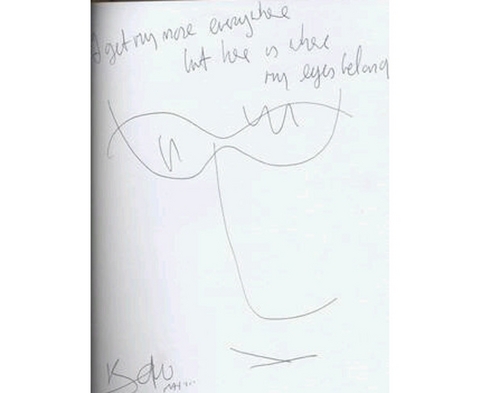 I get my nose everywhere
but here is where
my eyes belong